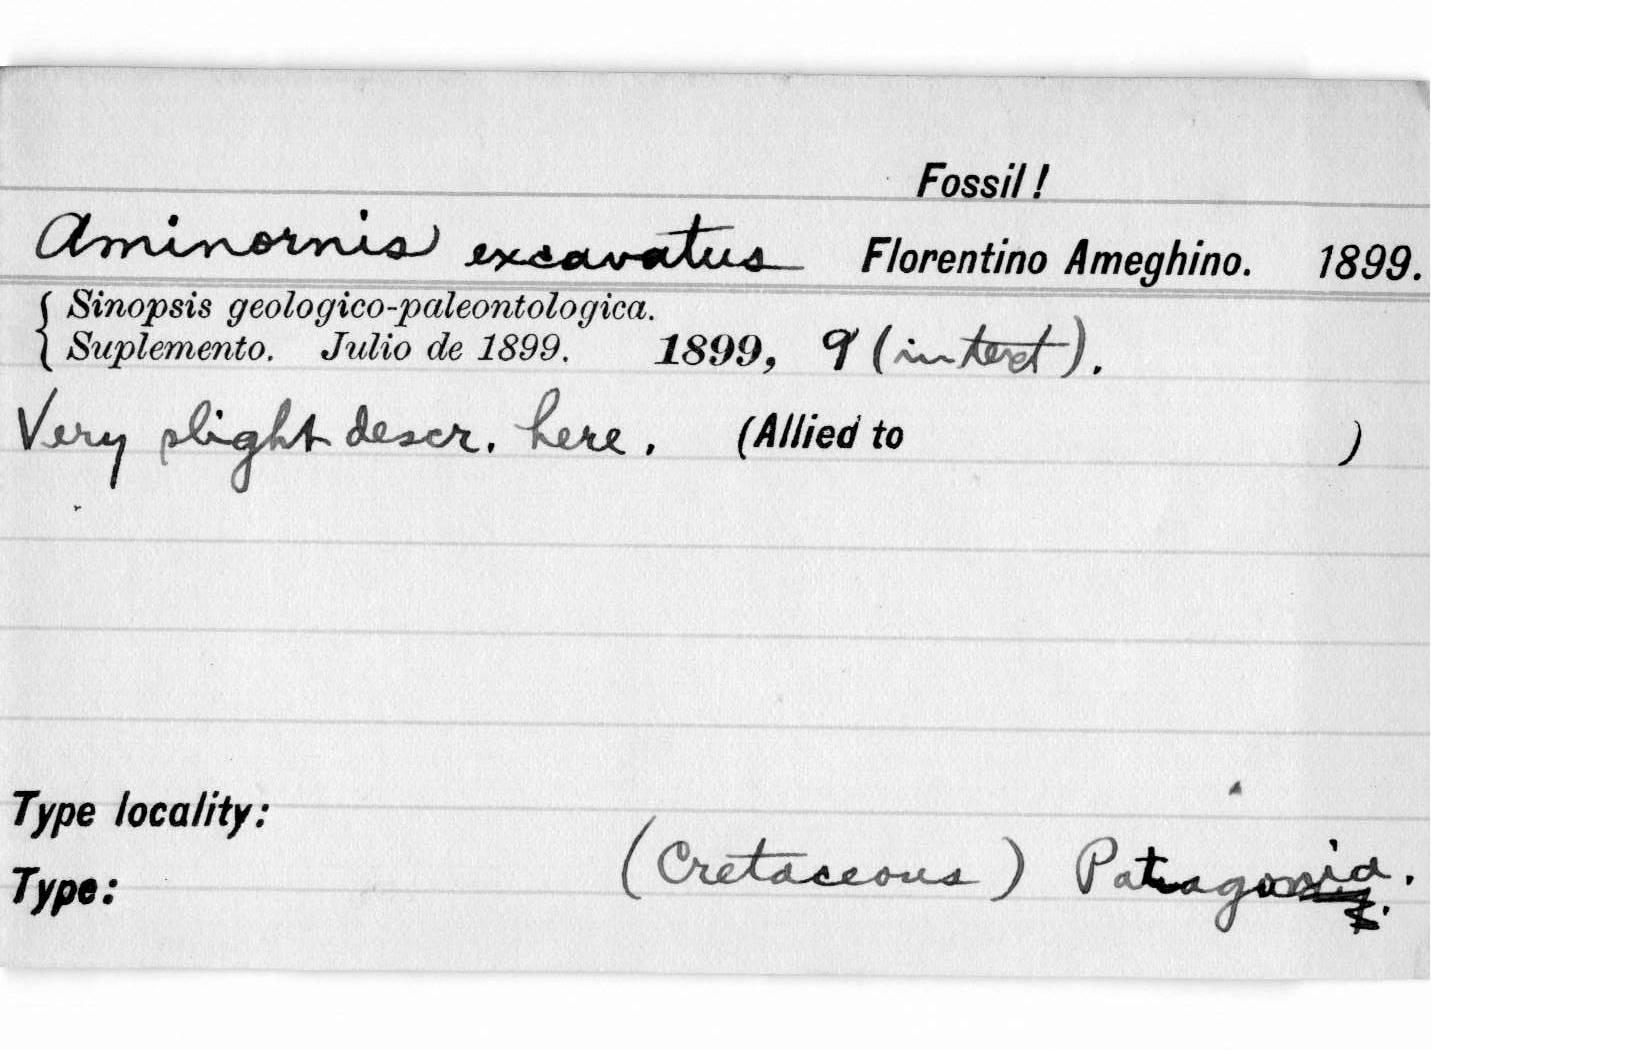 Fossil!
Aminornis excavatus Florentino Ameghino. 1899.
{ Sinopsis geologico-paleontologica.
{ Suplemento. Julio de 1899. 1899, 9 (in text).
Very slight descr. here. (Allied to )
Type locality:
(Cretaceous) Patagonia.
Type: